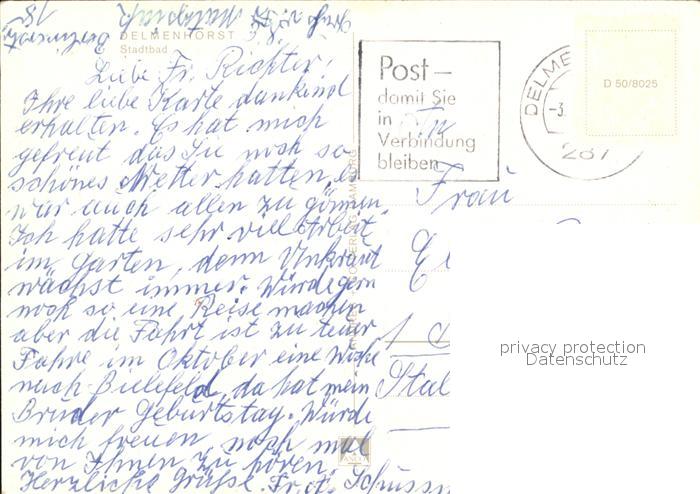 DELMENHORST
Stadtbad
Liebe Fr. Richter!
Ihre liebe Karte dankend
erhalten. Es hat mich
gefreut das Sie noch so
schönes Wetter hatten, es
war auch allen zu gönnen.
Ich hatte sehr viel Arbeit
im Garten, denn Unkraut
wächst immer. Würde gern
noch so eine Reise machen
aber die Fahrt ist zu teuer
Fahre im Oktober eine Woche
nach Bielefeld, da hat mein
Bruder Geburtstag. Würde
mich freuen, noch mal
von Ihnen zu hören.
Herzliche Grüße. Fr. A. Schussm
Post –
damit Sie
in
Verbindung
bleiben
DELME
-3.
287
D 50/8025
An
Frau
privacy protection
Datenschutz